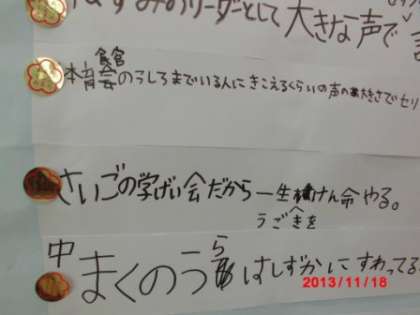 ねずみのリーダーとして大きな声で
体育会館のうしろまでいる人にきこえるくらいの声の大きさでセリ
さいごの学げい会だから一生けん命やる。
うごきを
中まくのうらはしずかにすわってる
2013/11/18